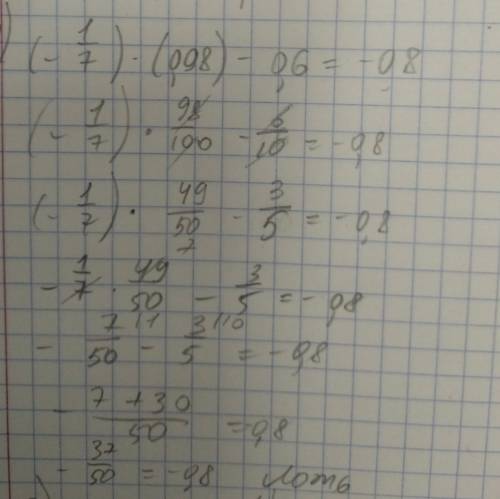 (- 1/7) · (0,98) - 0,6 = -0,8
(- 1/7) · 98/100 - 6/10 = -0,8
(- 1/7) · 49/50 - 3/5 = -0,8
- 1/7 · 49/50 - 3/5 = -0,8
- 7/50 - 3/5 = -0,8
- 7 + 30/50 = -0,8
- 37/50 = -0,8 Ложь